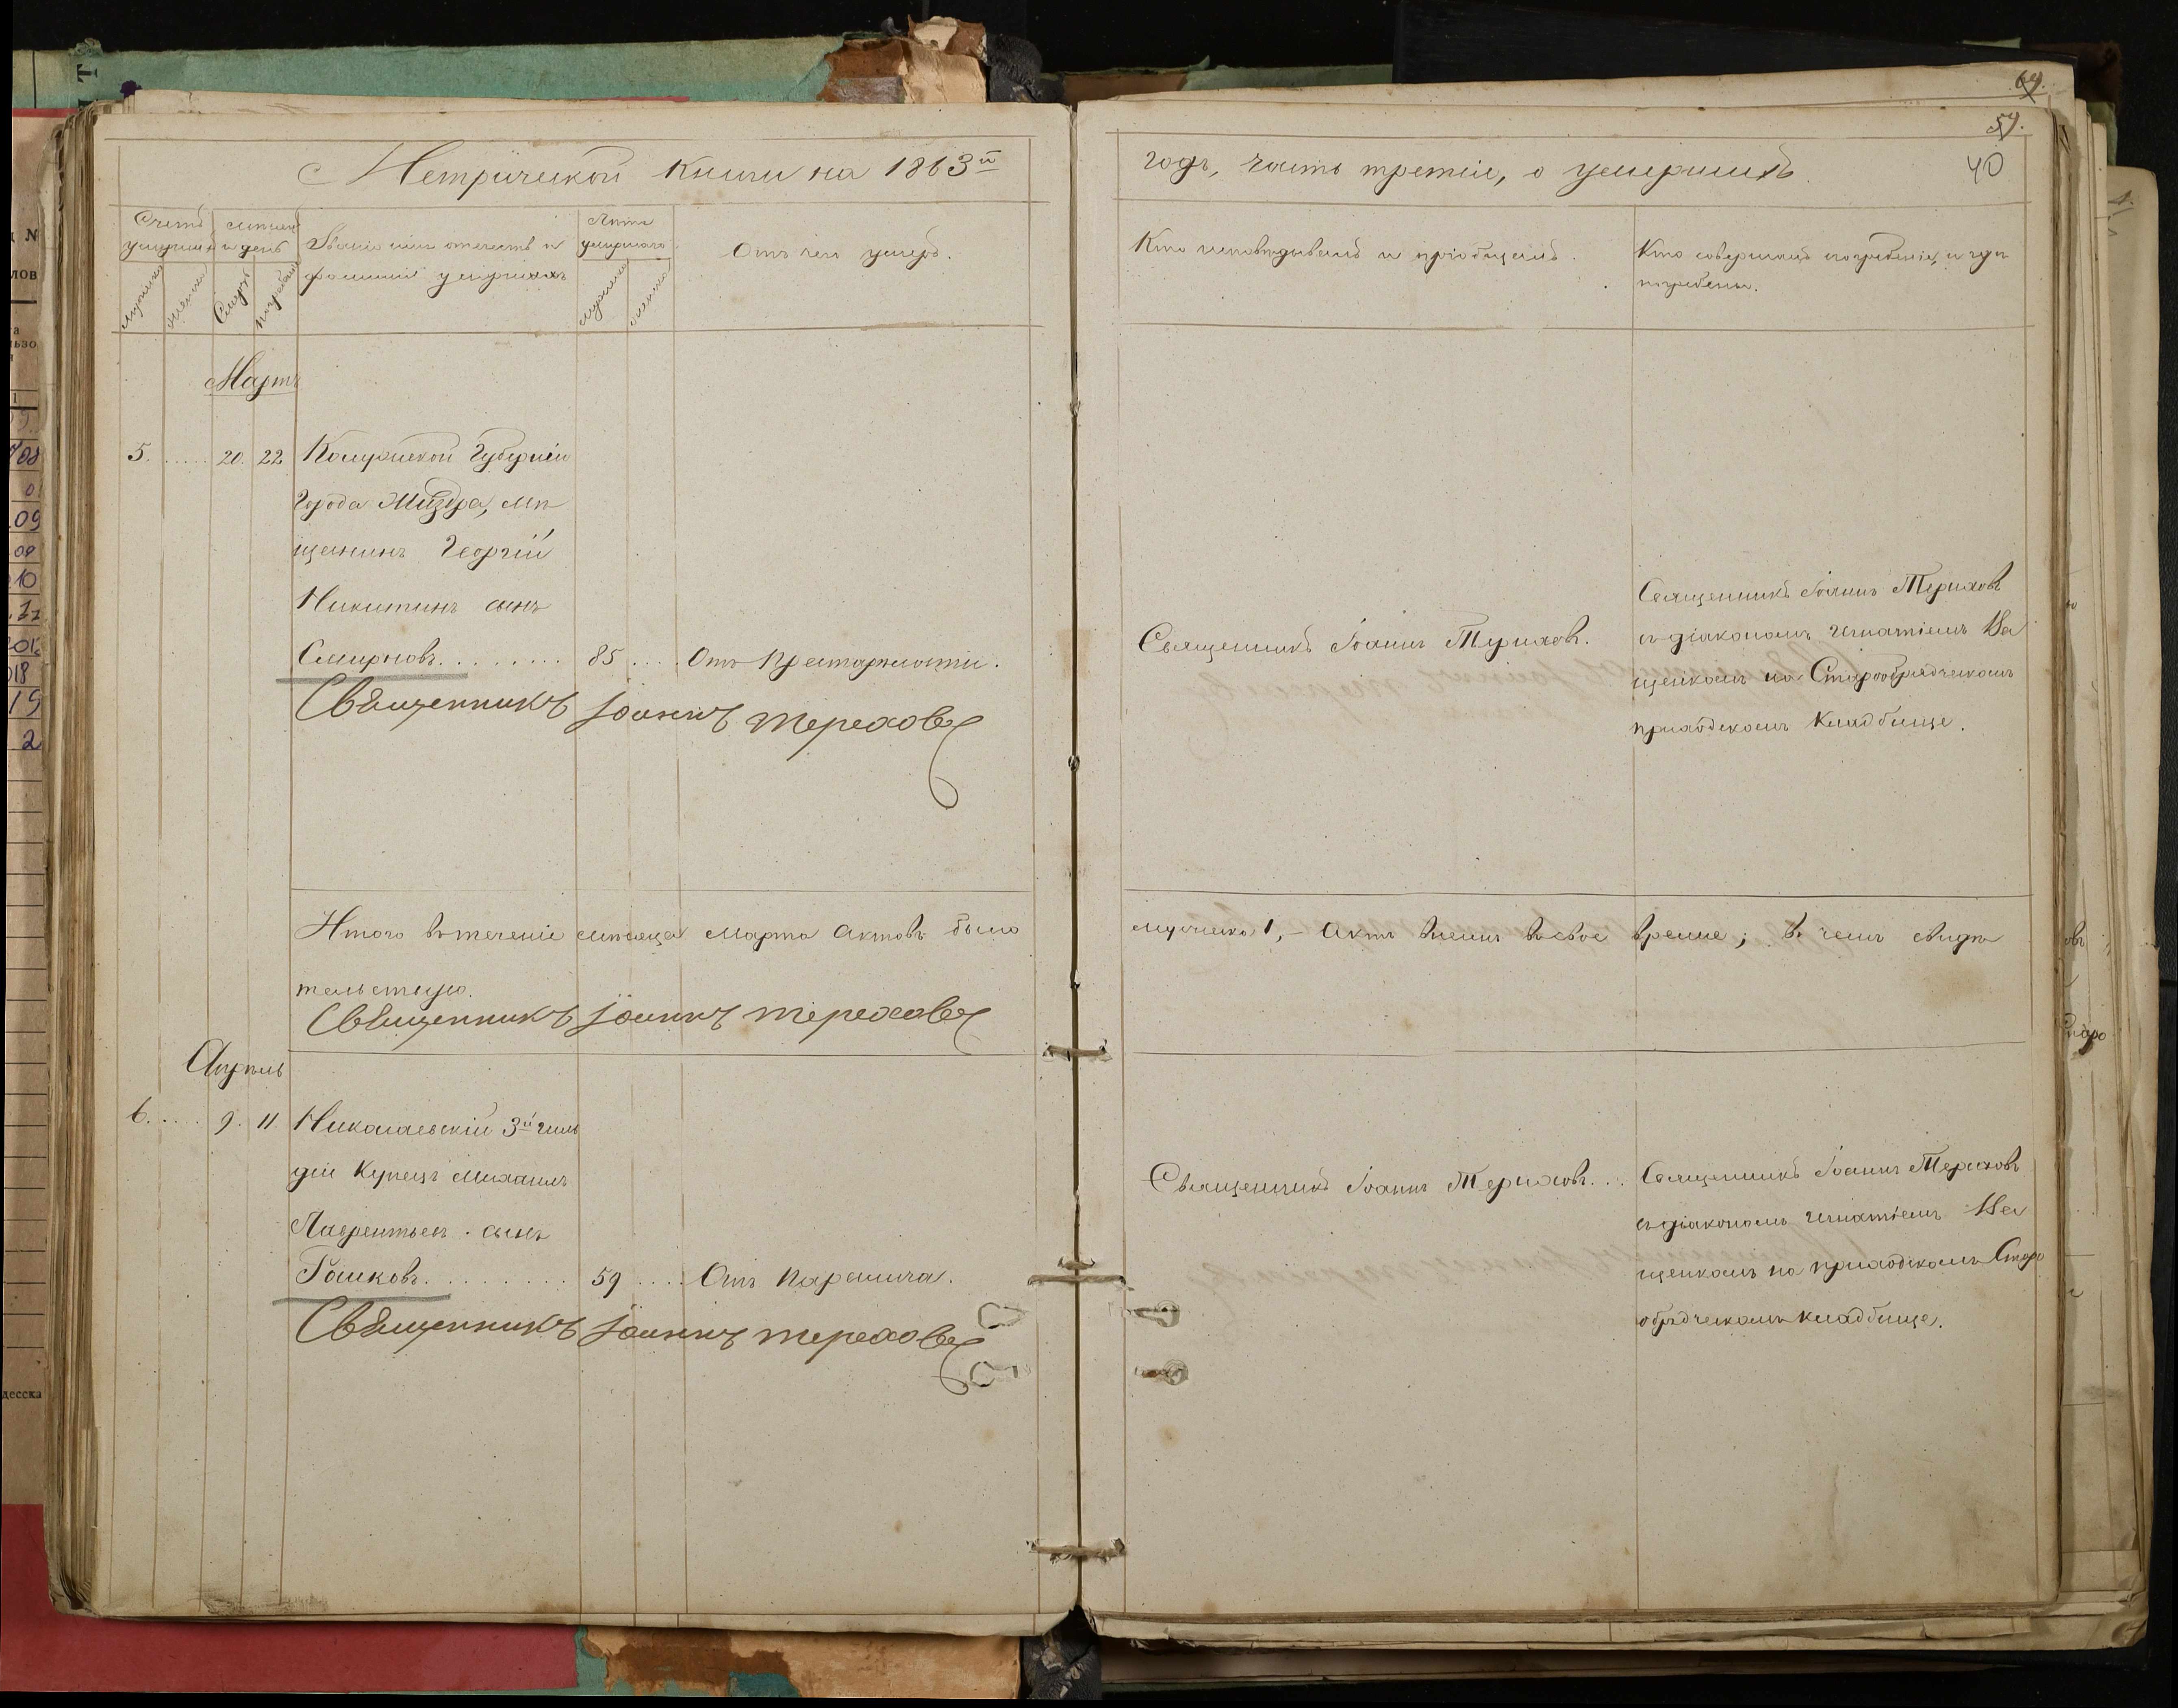 64.
54.
40
Метрической книги на 1863й
годъ, часть третія, о умершихъ.
Счетъ умершихъ
мѣсяцъ и день
Званіе имя отечество и фамилія умершихъ
Лета умершаго
Отъ чего умеръ.
Кто исповѣдывалъ и пріобщалъ.
Кто совершалъ погребеніе, и гдѣ
погребены.
мужеска
женска
Смерть
погребеніе
мужеска
женска
Мартъ
5. 20. 22 Калужской Губерніи
Города Миздра, мѣ
щанинъ Георгій
Никитинъ сынъ
Смирновъ. 85 Отъ Престарѣлости.
Священникъ Іоаннъ Тереховъ
Священникъ Іоаннъ Тереховъ.
Священникъ Іоаннъ Тереховъ
съ діакономъ Игнатіемъ Ва
щенкомъ на Старообрядческомъ
приходскомъ кладбище.
Итого въ теченіе мѣсяца Марта Актовъ было
мужеска 1, – Актъ внесенъ въ свое время; въ чемъ свидѣ
тельствую.
Священникъ Іоаннъ Тереховъ
Апрель
6. 9. 11 Николаевскій 3й гиль
діи Купецъ Михаилъ
Лаврентьевъ сынъ
Гошковъ. 59 Отъ Паралича.
Священникъ Іоаннъ Тереховъ
Священникъ Іоаннъ Тереховъ.
Священникъ Іоаннъ Тереховъ
съ діакономъ Игнатіемъ Ва
щенкомъ на приходскомъ Старо
обрядческомъ кладбище.